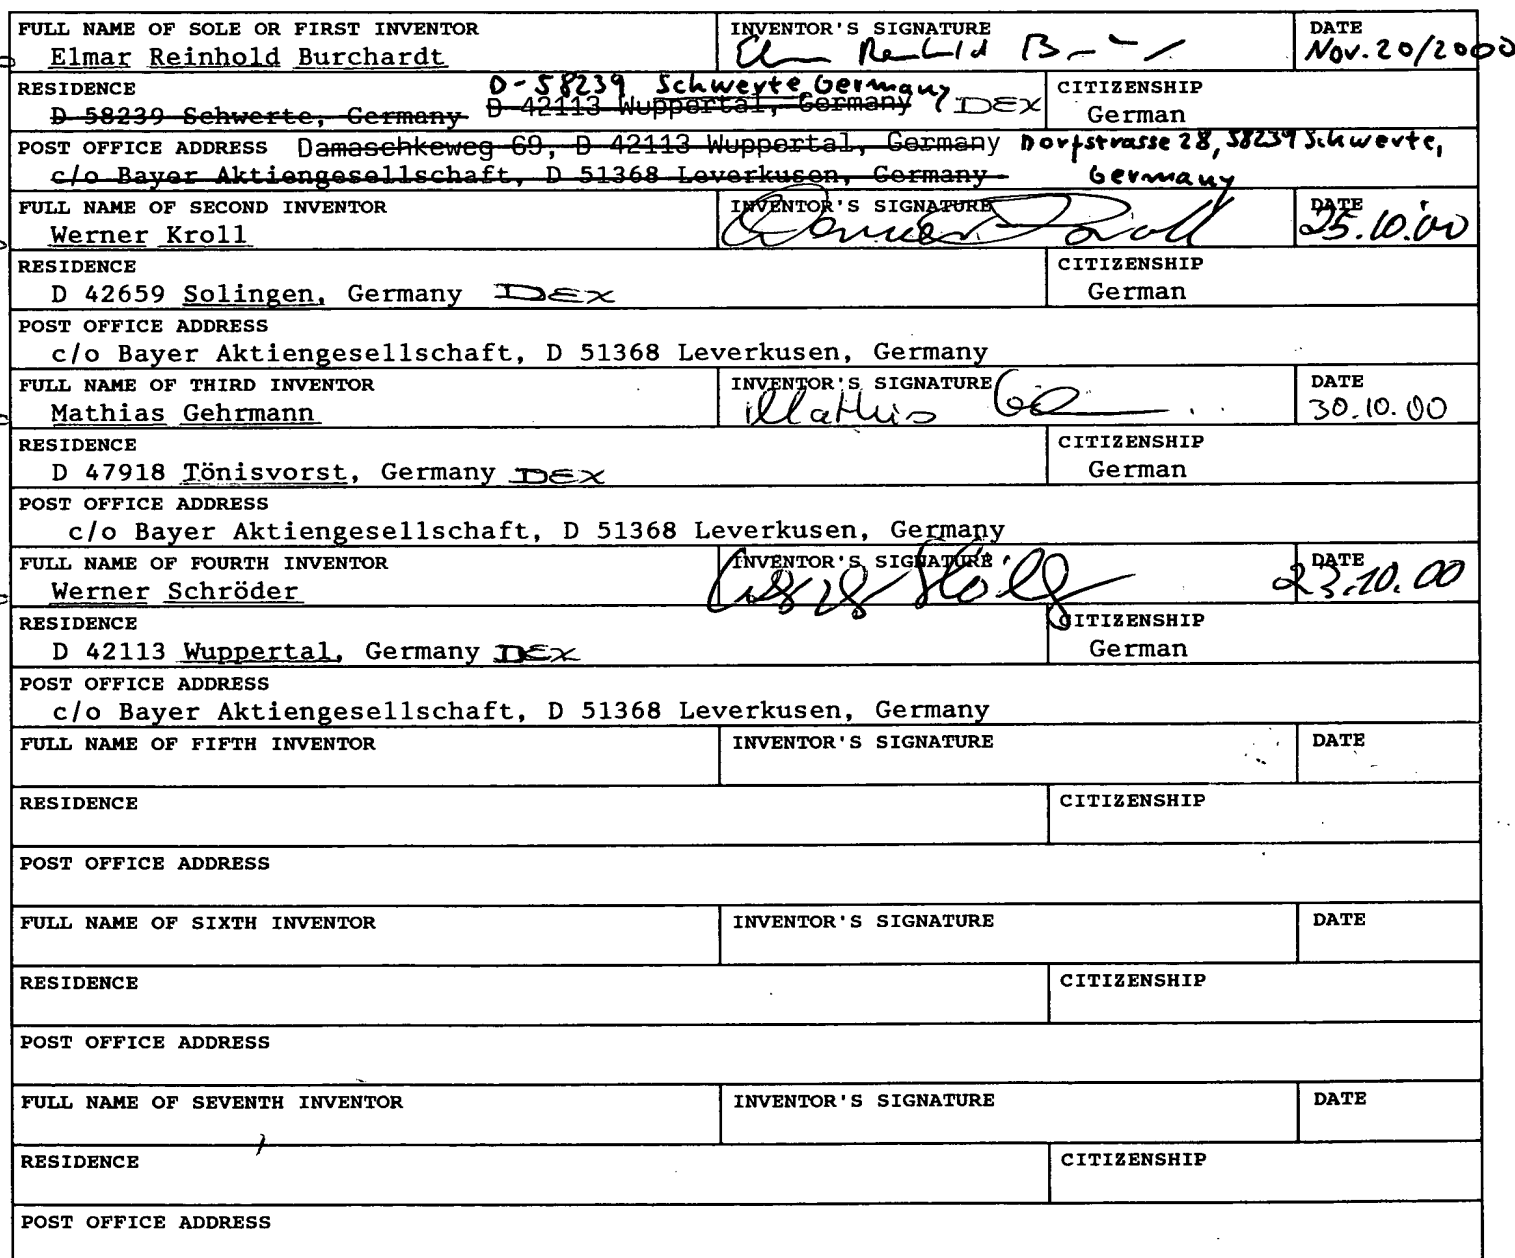 FULL NAME OF SOLE OR FIRST INVENTOR INVENTOR'S SIGNATURE DATE
Elmar Reinhold Burchardt Nov. 20/2000
RESIDENCE D-58239 Schwerte Germany CITIZENSHIP
D 58239 Schwerte, Germany D 42113 Wuppertal, Germany DEX German
POST OFFICE ADDRESS Damaschkeweg 69, D 42113 Wuppertal, Germany Dorfstrasse 28, 58239 Schwerte,
c/o Bayer Aktiengesellschaft, D 51368 Leverkusen, Germany Germany
FULL NAME OF SECOND INVENTOR INVENTOR'S SIGNATURE DATE
Werner Kroll 25.10.00
RESIDENCE CITIZENSHIP
D 42659 Solingen, Germany DEX German
POST OFFICE ADDRESS
c/o Bayer Aktiengesellschaft, D 51368 Leverkusen, Germany
FULL NAME OF THIRD INVENTOR INVENTOR'S SIGNATURE DATE
Mathias Gehrmann Mathias 30.10.00
RESIDENCE CITIZENSHIP
D 47918 Tönisvorst, Germany DEX German
POST OFFICE ADDRESS
c/o Bayer Aktiengesellschaft, D 51368 Leverkusen, Germany
FULL NAME OF FOURTH INVENTOR INVENTOR'S SIGNATURE DATE
Werner Schröder 23.10.00
RESIDENCE CITIZENSHIP
D 42113 Wuppertal, Germany DEX German
POST OFFICE ADDRESS
c/o Bayer Aktiengesellschaft, D 51368 Leverkusen, Germany
FULL NAME OF FIFTH INVENTOR INVENTOR'S SIGNATURE DATE
RESIDENCE CITIZENSHIP
POST OFFICE ADDRESS
FULL NAME OF SIXTH INVENTOR INVENTOR'S SIGNATURE DATE
RESIDENCE CITIZENSHIP
POST OFFICE ADDRESS
FULL NAME OF SEVENTH INVENTOR INVENTOR'S SIGNATURE DATE
RESIDENCE CITIZENSHIP
POST OFFICE ADDRESS